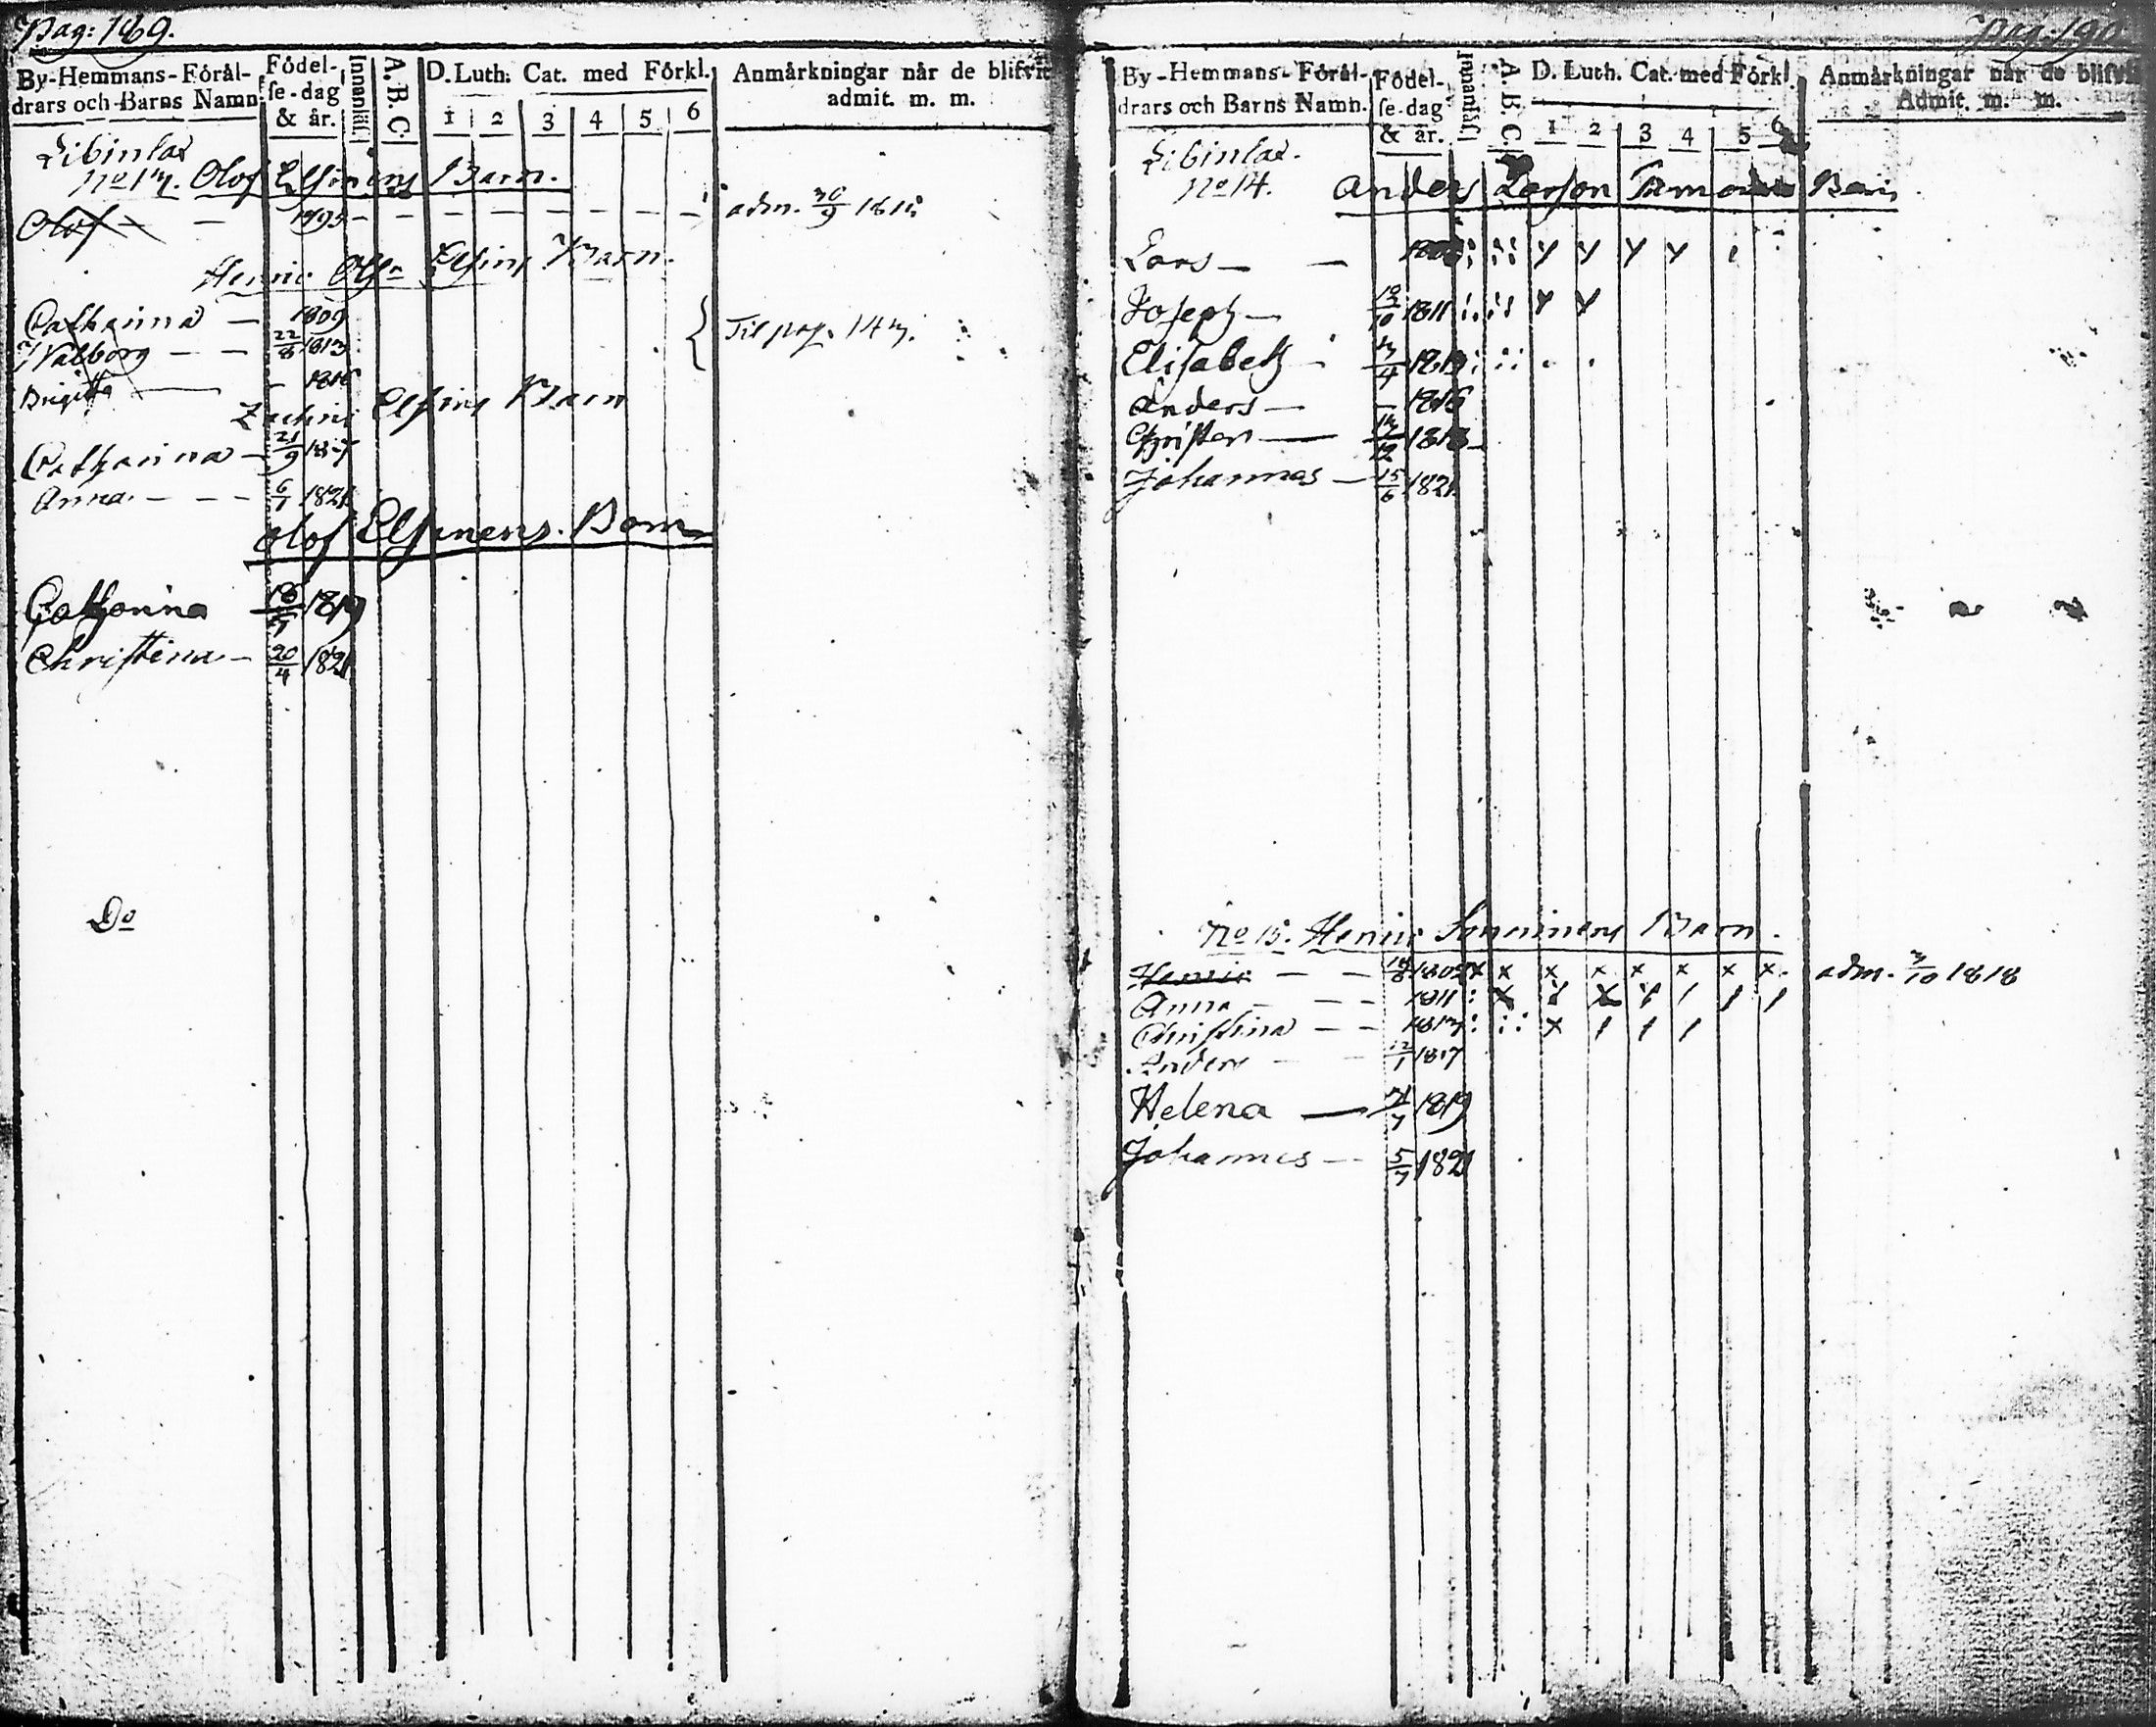 Pag: 189.
By-Hemmans-Förål-
drars och Barns Namn.
Födel-
se-dag
& år.
Innanläs.
A. B. C.
D. Luth. Cat. med Förkl.
1 2 3 4 5 6
Anmärkningar når de blifvit
admit. m. m.
Libinlax
No 13. Olof Elsinens Barn.
Olof — — 1795 — — — — — — — — adm. 30/9 1815
Henric Olss Elsins Barn.
Catharina — 1809
Walborg — — 22/8 1813 Til pag. 143.
Brigitta — — 1816
Zachris Elsins Barn
Catharina — 21/9 1817
Anna — — — 6/1 1821
Olof Elsinens Barn
Catharina 18/7 1819
Christina — 20/4 1821
Do
Pag. 190
By-Hemmans-Förål-
drars och Barns Namn.
Födel-
se-dag
& år.
Innanläs.
A. B. C.
D. Luth. Cat. med Förkl.
1 2 3 4 5 6
Anmärkningar når de blifvit
Admit. m. m.
Libinlax.
No 14. Anders Larsson Barn
Lars — —
Joseph — 1811
Elisabeth — 1813
Anders — — 1816
Christer — 1818
Johannes — 15/6 1821
No 15. Henric Barn.
Henric — — x x x x x x x x adm. 3/10 1818
Anna — — — 1811
Christina — — 1813
Anders — — 12/1 1817
Helena — 31/7 1819
Johannes — 5/7 1821